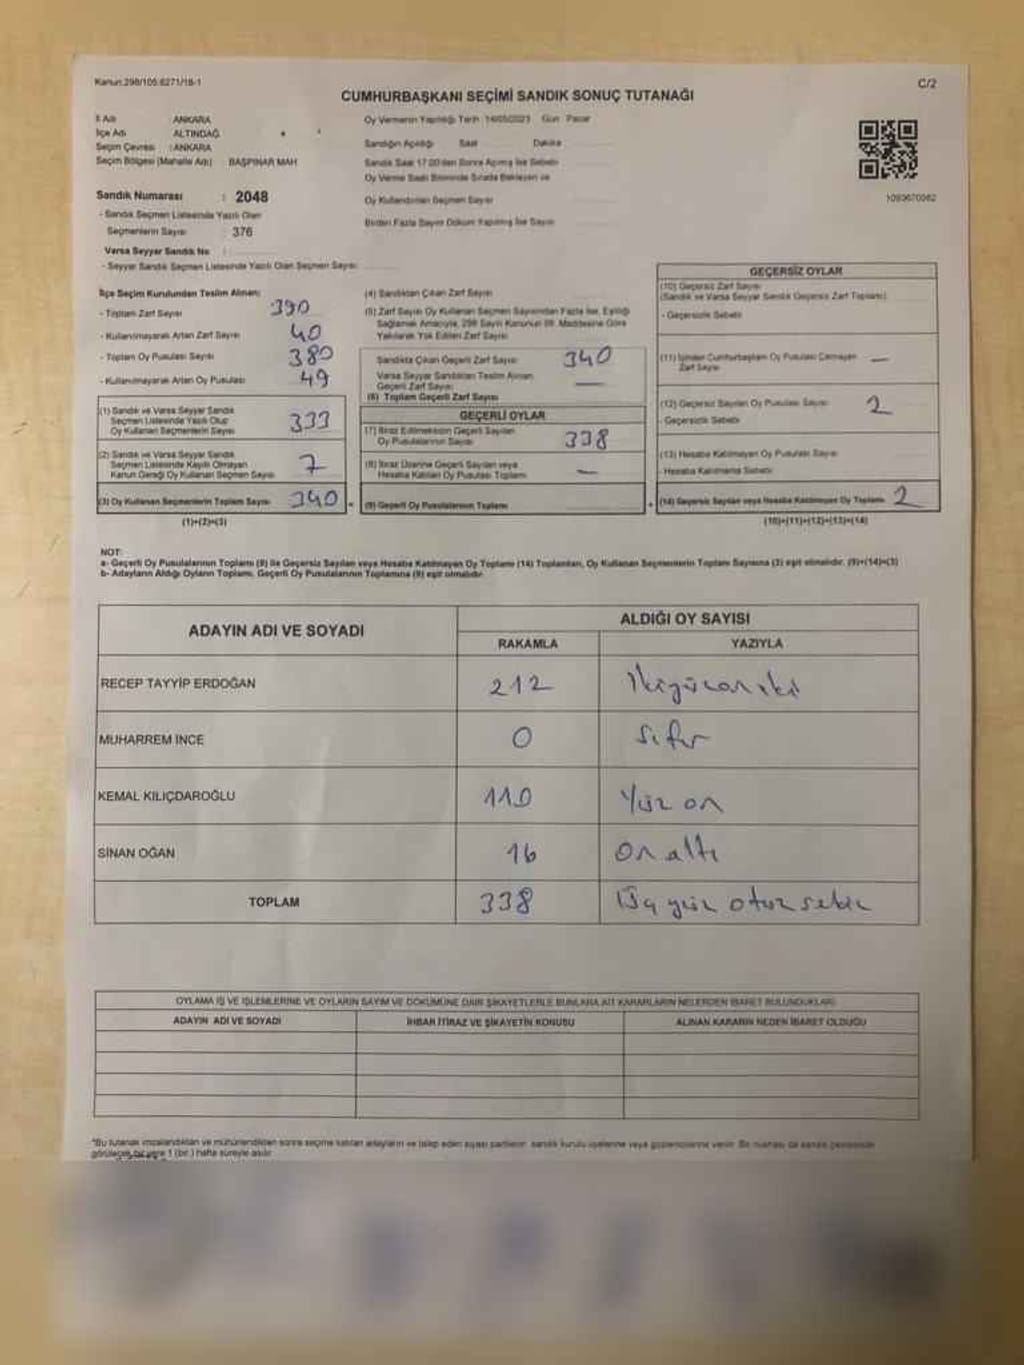 Kanun:298/105:6271/18-1
C/2
CUMHURBAŞKANI SEÇİMİ SANDIK SONUÇ TUTANAĞI
İl Adı ANKARA
İlçe Adı ALTINDAĞ
Seçim Çevresi : ANKARA
Seçim Bölgesi (Mahalle Adı) BAŞPINAR MAH
Sandık Numarası : 2048
- Sandık Seçmen Listesinde Yazılı Olan
Seçmenlerin Sayısı : 376
Varsa Seyyar Sandık No :
- Seyyar Sandık Seçmen Listesinde Yazılı Olan Seçmen Sayısı
Oy Vermenin Yapıldığı Tarih 14/05/2023 Gün Pazar
Sandığın Açıldığı Saat Dakika
Sandık Saat 17.00'den Sonra Açılmış İse Sebebi
Oy Verme Saati Bitiminde Sırada Bekleyen ve
Oy Kullandırılan Seçmen Sayısı
Birden Fazla Sayım Döküm Yapılmış İse Sayısı
1093670062
İlçe Seçim Kurulundan Teslim Alınan:
- Toplam Zarf Sayısı 390
- Kullanılmayarak Artan Zarf Sayısı 40
- Toplam Oy Pusulası Sayısı 380
- Kullanılmayarak Artan Oy Pusulası 49
(1) Sandık ve Varsa Seyyar Sandık
Seçmen Listesinde Yazılı Olup
Oy Kullanan Seçmenlerin Sayısı 333
(2) Sandık ve Varsa Seyyar Sandık
Seçmen Listesinde Kayıtlı Olmayan
Kanun Gereği Oy Kullanan Seçmen Sayısı 7
(3) Oy Kullanan Seçmenlerin Toplam Sayısı 340
(1)+(2)=(3)
(4) Sandıktan Çıkan Zarf Sayısı
(5) Zarf Sayısı Oy Kullanan Seçmen Sayısından Fazla İse, Eşitliği
Sağlamak Amacıyla, 298 Sayılı Kanunun 98. Maddesine Göre
Yakılarak Yok Edilen Zarf Sayısı
Sandıkta Çıkan Geçerli Zarf Sayısı 340
Varsa Seyyar Sandıktan Teslim Alınan
Geçerli Zarf Sayısı —
(6) Toplam Geçerli Zarf Sayısı
GEÇERLİ OYLAR
(7) İtiraz Edilmeksizin Geçerli Sayılan
Oy Pusulalarının Sayısı 338
(8) İtiraz Üzerine Geçerli Sayılan veya
Hesaba Katılan Oy Pusulası Toplamı —
= (9) Geçerli Oy Pusulalarının Toplamı
GEÇERSİZ OYLAR
(10) Geçersiz Zarf Sayısı
(Sandık ve Varsa Seyyar Sandık Geçersiz Zarf Toplamı)
- Geçersizlik Sebebi
(11) İçinden Cumhurbaşkanı Oy Pusulası Çıkmayan —
Zarf Sayısı
(12) Geçersiz Sayılan Oy Pusulası Sayısı 2
- Geçersizlik Sebebi
(13) Hesaba Katılmayan Oy Pusulası Sayısı
- Hesaba Katılmama Sebebi
+ (14) Geçersiz Sayılan veya Hesaba Katılmayan Oy Toplamı 2
(10)+(11)+(12)+(13)=(14)
NOT:
a- Geçerli Oy Pusulalarının Toplamı (9) ile Geçersiz Sayılan veya Hesaba Katılmayan Oy Toplamı (14) Toplamları, Oy Kullanan Seçmenlerin Toplam Sayısına (3) eşit olmalıdır. (9)+(14)=(3)
b- Adayların Aldığı Oyların Toplamı, Geçerli Oy Pusulalarının Toplamına (9) eşit olmalıdır.
ADAYIN ADI VE SOYADI
ALDIĞI OY SAYISI
RAKAMLA YAZIYLA
RECEP TAYYİP ERDOĞAN 212 İkiyüzoniki
MUHARREM İNCE 0 Sıfır
KEMAL KILIÇDAROĞLU 110 Yüz on
SİNAN OĞAN 16 On altı
TOPLAM 338 Üç yüz otuz sekiz
OYLAMA İŞ VE İŞLEMLERİNE VE OYLARIN SAYIM VE DÖKÜMÜNE DAİR ŞİKAYETLERLE BUNLARA AİT KARARLARIN NELERDEN İBARET BULUNDUKLARI
ADAYIN ADI VE SOYADI
İHBAR İTİRAZ VE ŞİKAYETİN KONUSU
ALINAN KARARIN NEDEN İBARET OLDUĞU
*Bu tutanak imzalandıktan ve mühürlendikten sonra seçime katılan adayların ve talep eden siyasi partilerin sandık kurulu üyelerine veya gözlemcilerine verilir. Bir nüshası da sandık çevresinde
görülecek bir yere 1 (bir) hafta süreyle asılır.